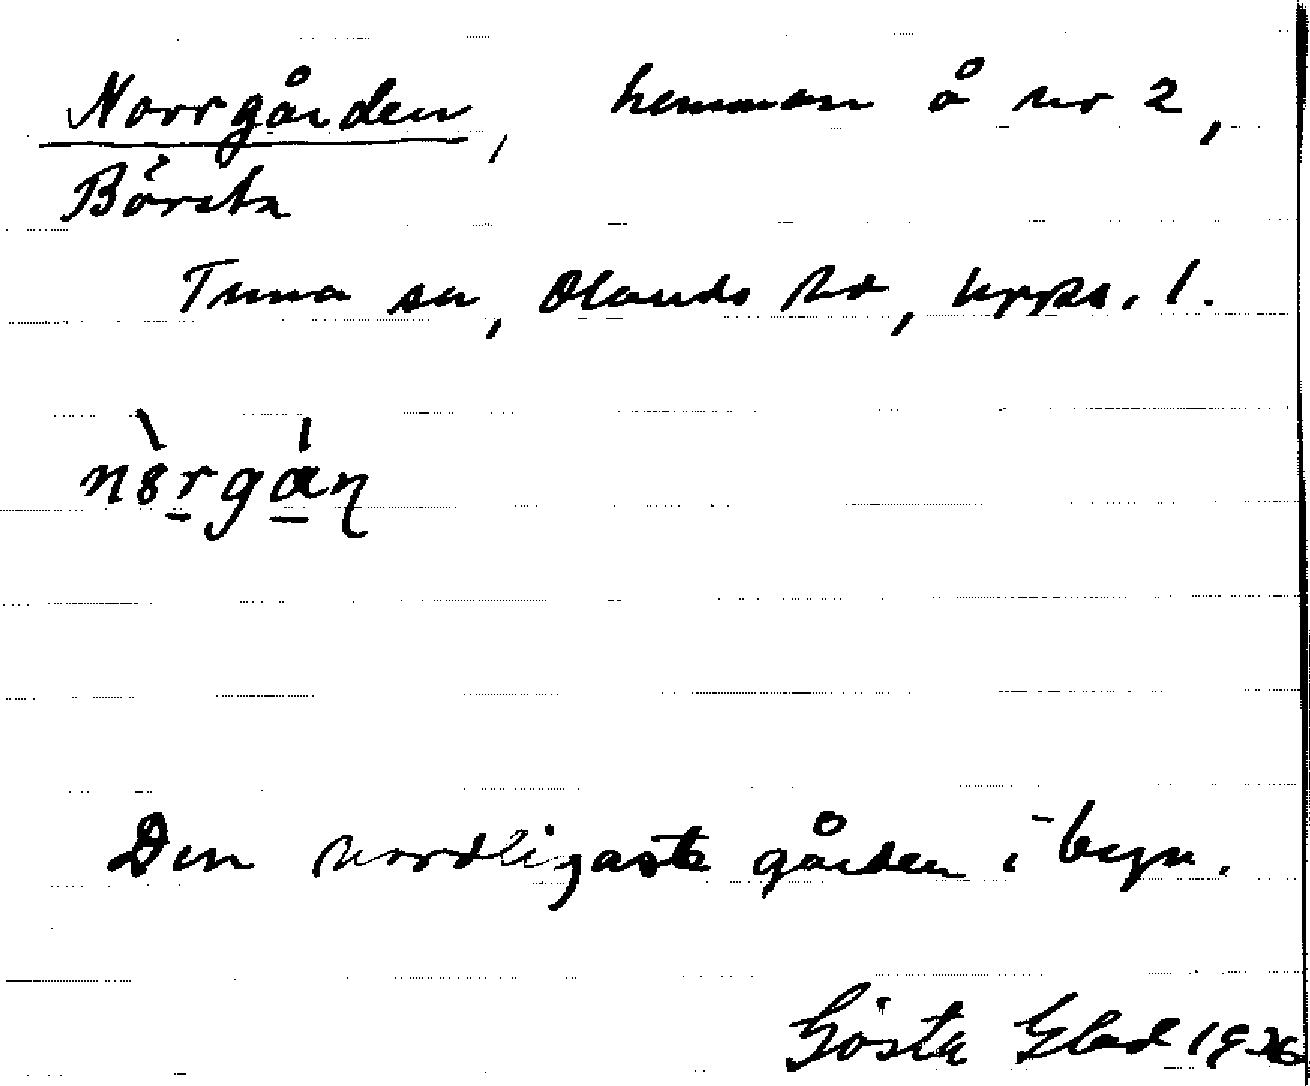 Norrgården, hemman å nr 2,
Börsta
Tuna sn, Olands hd, Upps. l.
nòrgán
Den nordligaste gården i byn.
Gösta Glad 1936